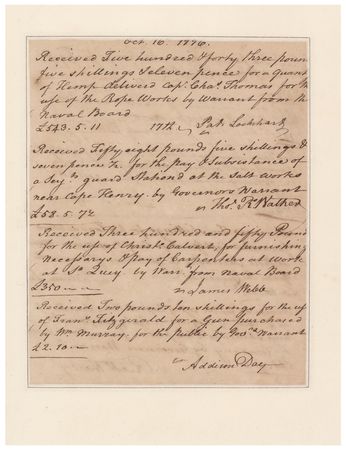 Oct. 10. 1776.
Received Five hundred & forty three poun
five shillings & eleven pence for a quant
of Hemp deliverd Cap. Chas. Thomas for th
use of the Rope Works by Warrant from the
Naval Board
£543.5.11 17th Pat. Lockhart
Received Fifty eight pounds five shillings &
seven pence ½ for the pay & Subsistance of
a guard Stationd at the Salt Works
near Cape Henry by Governors Warrant
£58.5.7½ Thos. R Walker
Received Three hundred and fifty Pound
for the use of Christr. Calvert, for furnishing
Necessarys & pay of Carpenters at Work
at So. Quay by Warr. from Naval Board
£350 James Webb
Received Two pounds ten shillings for the use
of Frans. Fitzgerald for a Gun purchased
by Wm. Murray for the public by Govrs. Warrant
£2.10
Addison Day